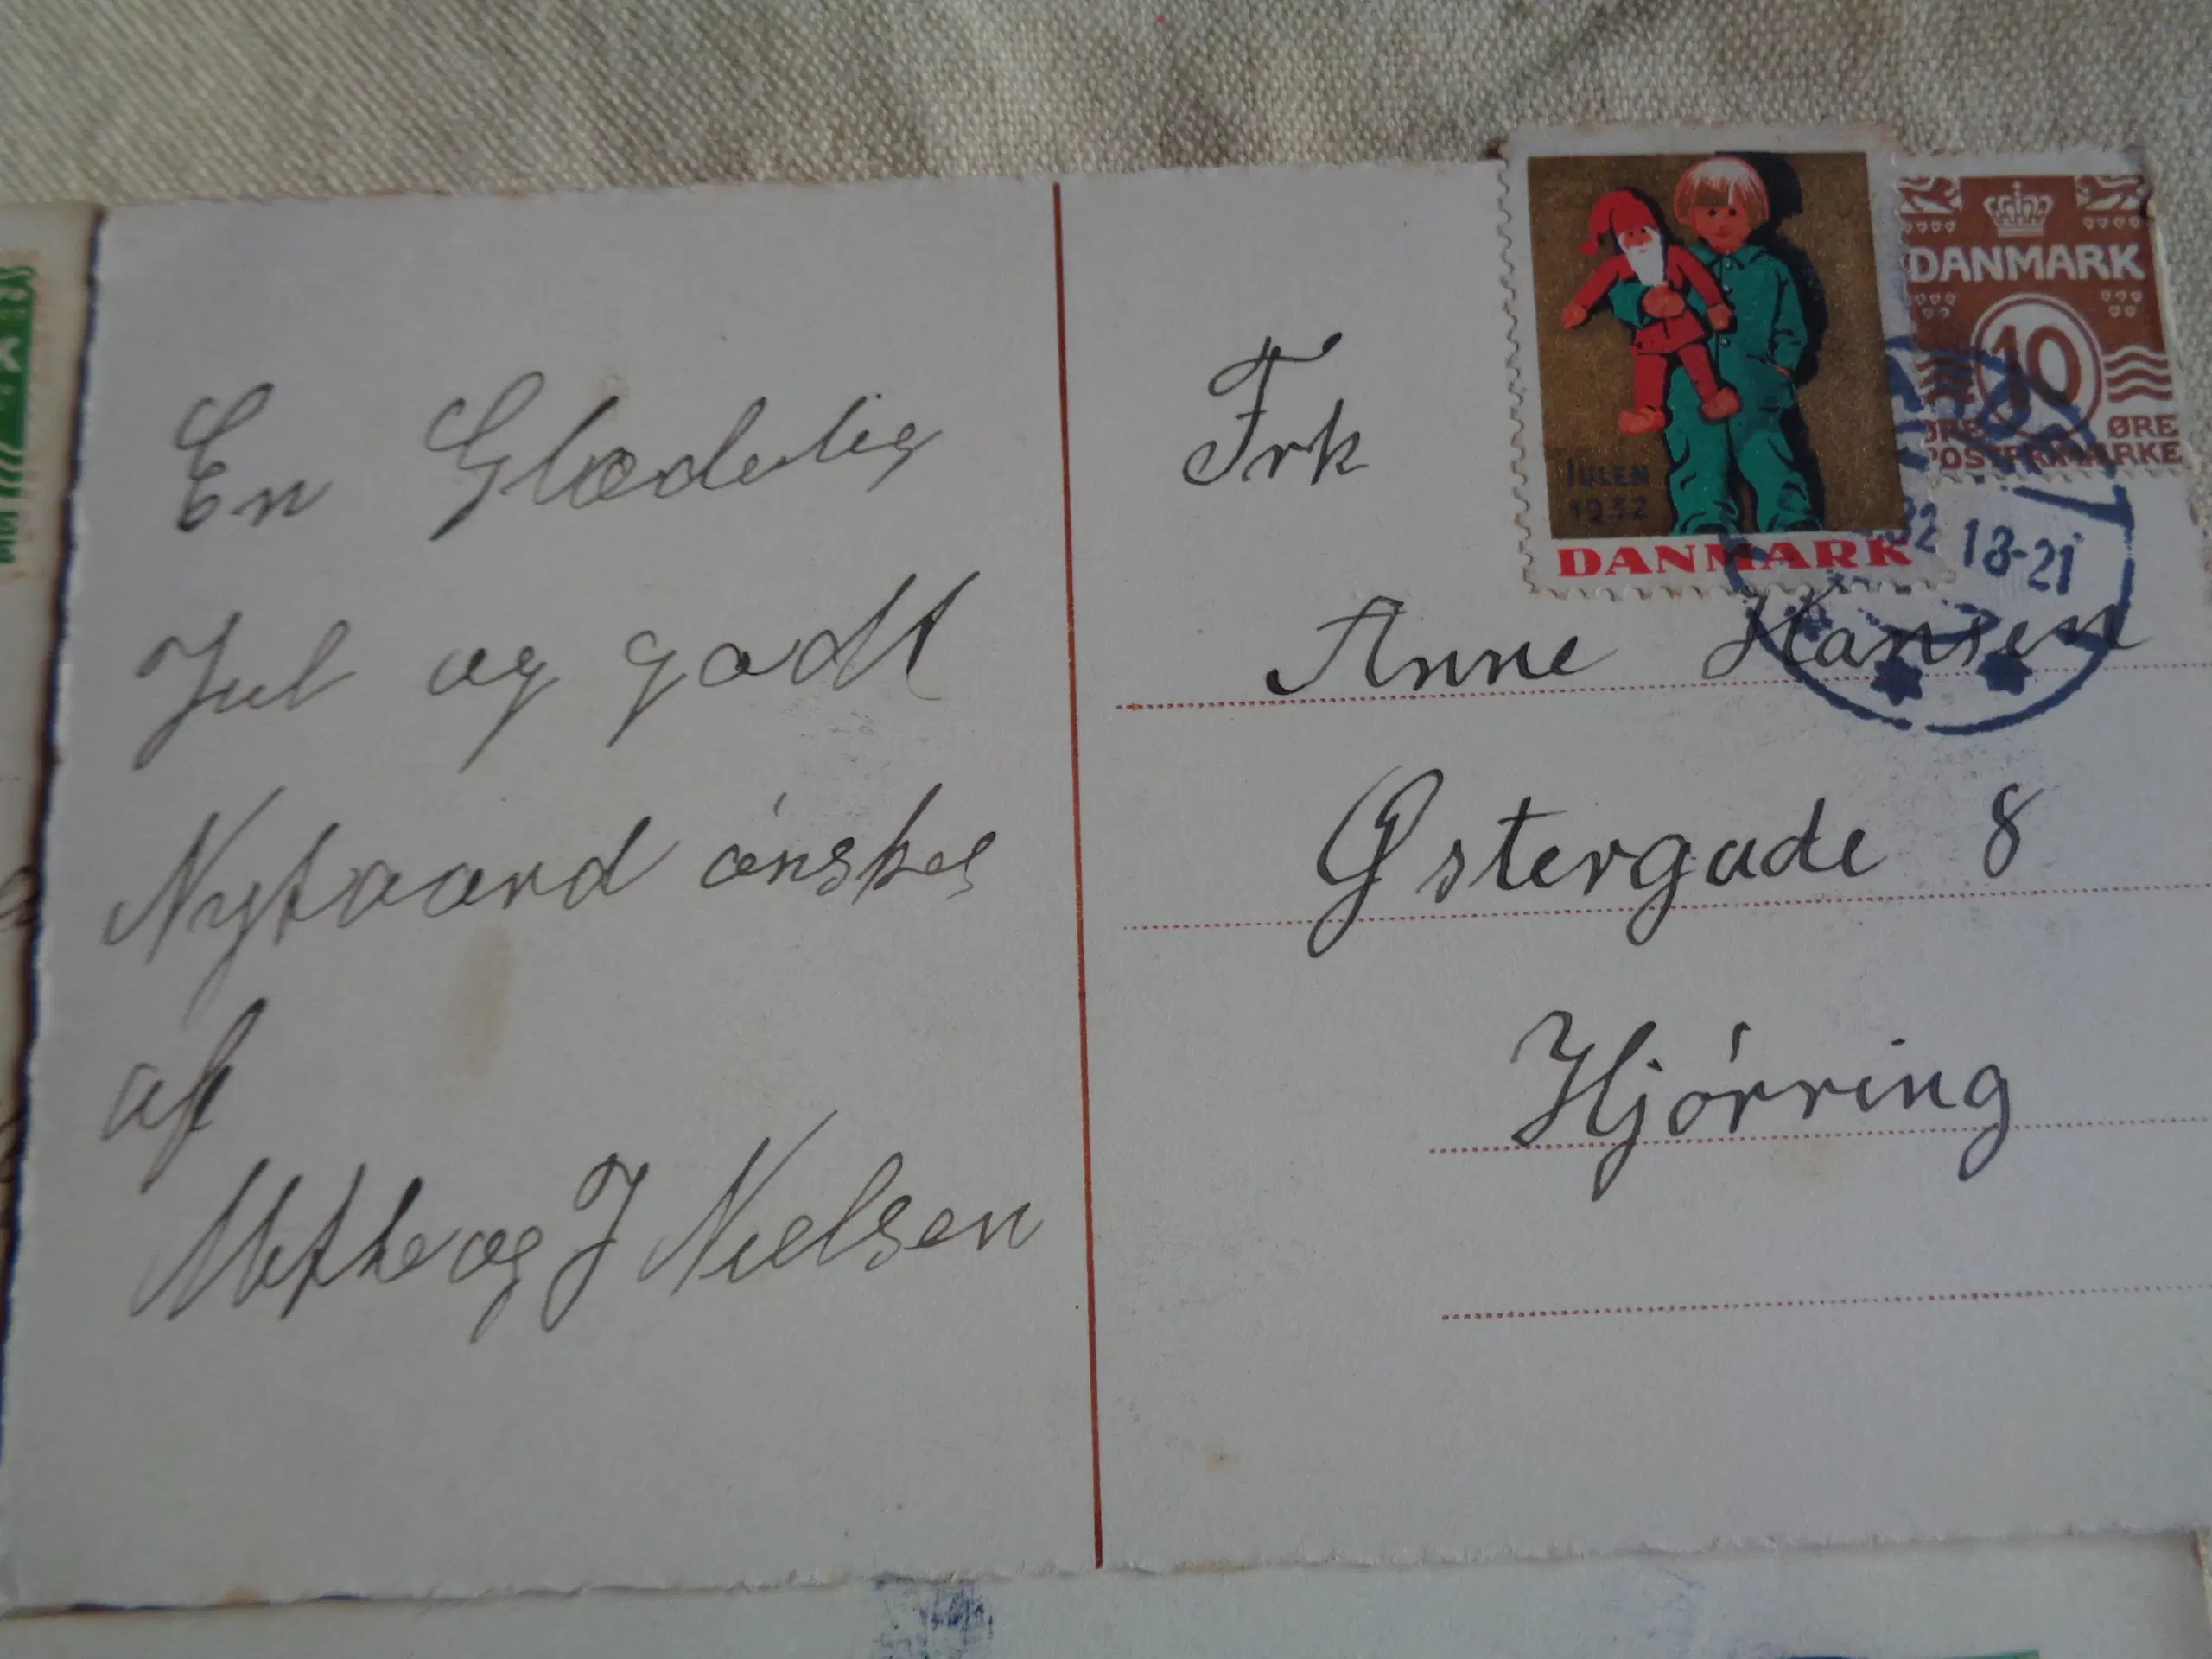 En Glædelig
Jul og godt
Nytaard ønskes
af
Methe og J Nielsen
Frk
Anne Hansen
Østergade 8
Hjørring
JULEN
1932
DANMARK
DANMARK
10
ØRE ØRE
POSTFRIMÆRKE
32 18-21